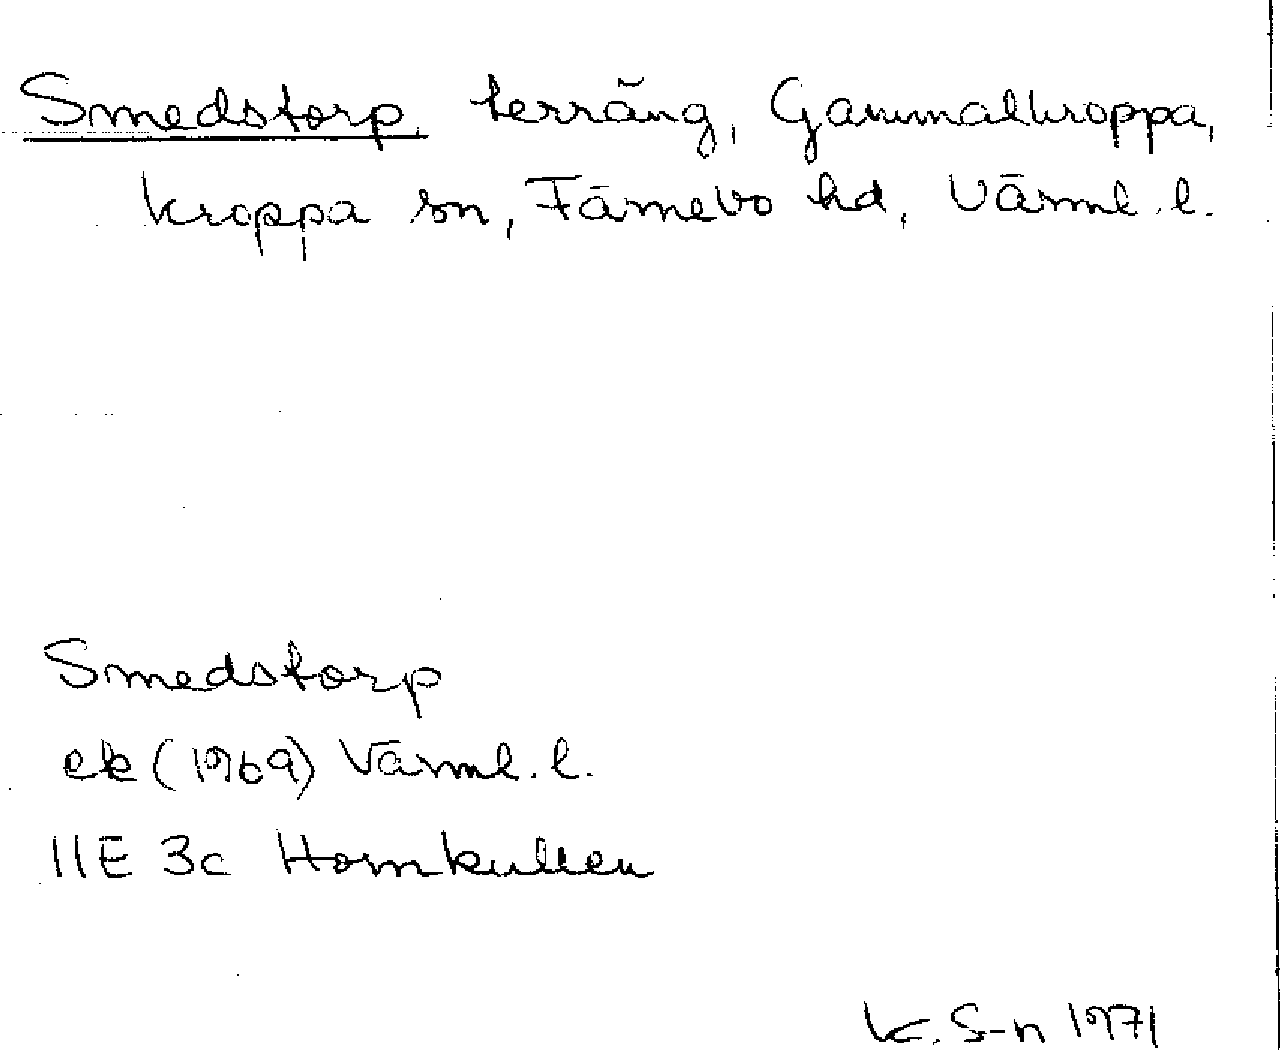 Smedstorp, terräng, Gammalkroppa,
Kroppa sn, Färnebo hd, Värml. l.
Smedstorp
ek (1969) Värml. l.
11E 3c Hornkullen
K. S-n 1971